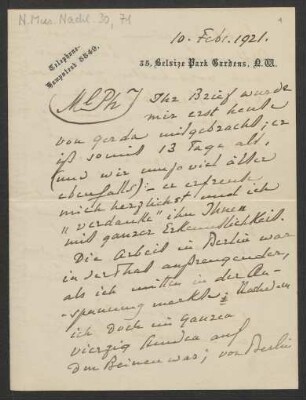 N. Mus. Nachl. 30, 71
10. Febr. 1921.
Telephone-
Hampstead 6640.
35, Belsize Park Gardens, N.W.
M. L. Ph! Ihr Brief wurde
mir erst heute
von Gerda mitgebracht; er
ist somit 13 Tage alt,
(und wir um so viel älter
ebenfalls) – er erfreute
mich herzlichst und ich
"verdanke" ihn Ihnen
mit ganzer Erkenntlichkeit.
Die Arbeit in Berlin war
insofern aufregender,
als ich mitten in der An-
spannung merkte: Nachdem
ich doch im Ganzen
vierzig Stunden auf
den Beinen war; von Berlin